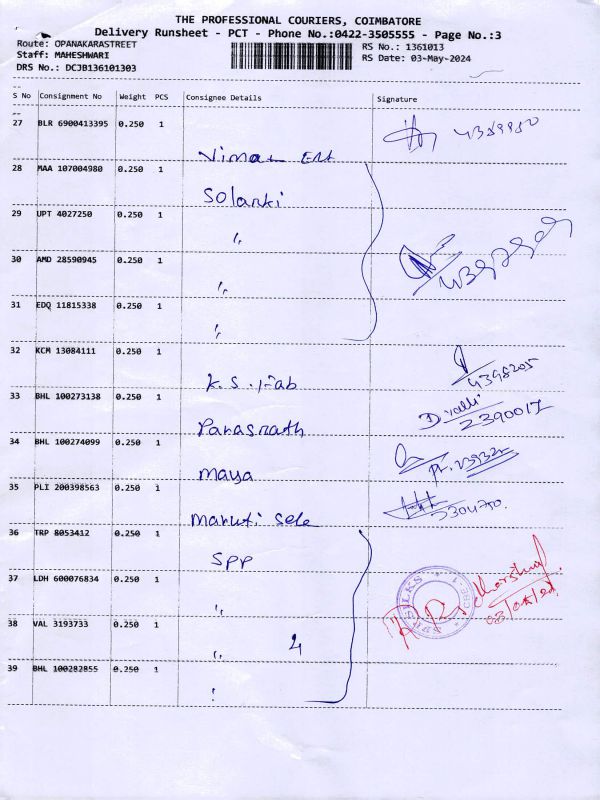 THE PROFESSIONAL COURIERS, COIMBATORE
Delivery Runsheet - PCT - Phone No.:0422-3505555 - Page No.:3
Route: OPANAKARASTREET
RS No.: 1361013
Staff: MAHESHWARI
RS Date: 03-May-2024
DRS No.: DCJB136101303
S No Consignment No Weight PCS Consignee Details Signature
27 BLR 6900413395 0.250 1
28 MAA 107004980 0.250 1
Solanki
29 UPT 4027250 0.250 1
"
30 AMD 28590945 0.250 1
"
31 EDQ 11815338 0.250 1
"
32 KCM 13084111 0.250 1
K.S. Fab
4398205
33 BHL 100273138 0.250 1
Parasnath
D.valli
2390017
34 BHL 100274099 0.250 1
maya
35 PLI 200398563 0.250 1
maruti sele
36 TRP 8053412 0.250 1
SPP
37 LDH 600076834 0.250 1
"
38 VAL 3193733 0.250 1
" 4
39 BHL 100282855 0.250 1
"